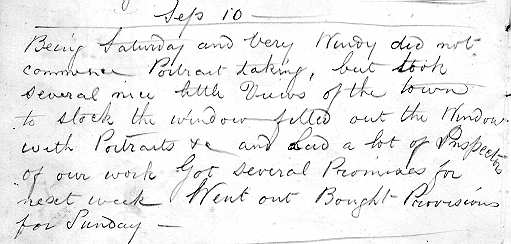 Sep 10
Being Saturday and Very Windy did not
commence Portrait taking, but took
several nice little Views of the town
to stock the window filled out the Window
with Portraits &c and had a lot of Inspectors
of our work Got several Promises for
next week Went out Bought Provisions
for Sunday —